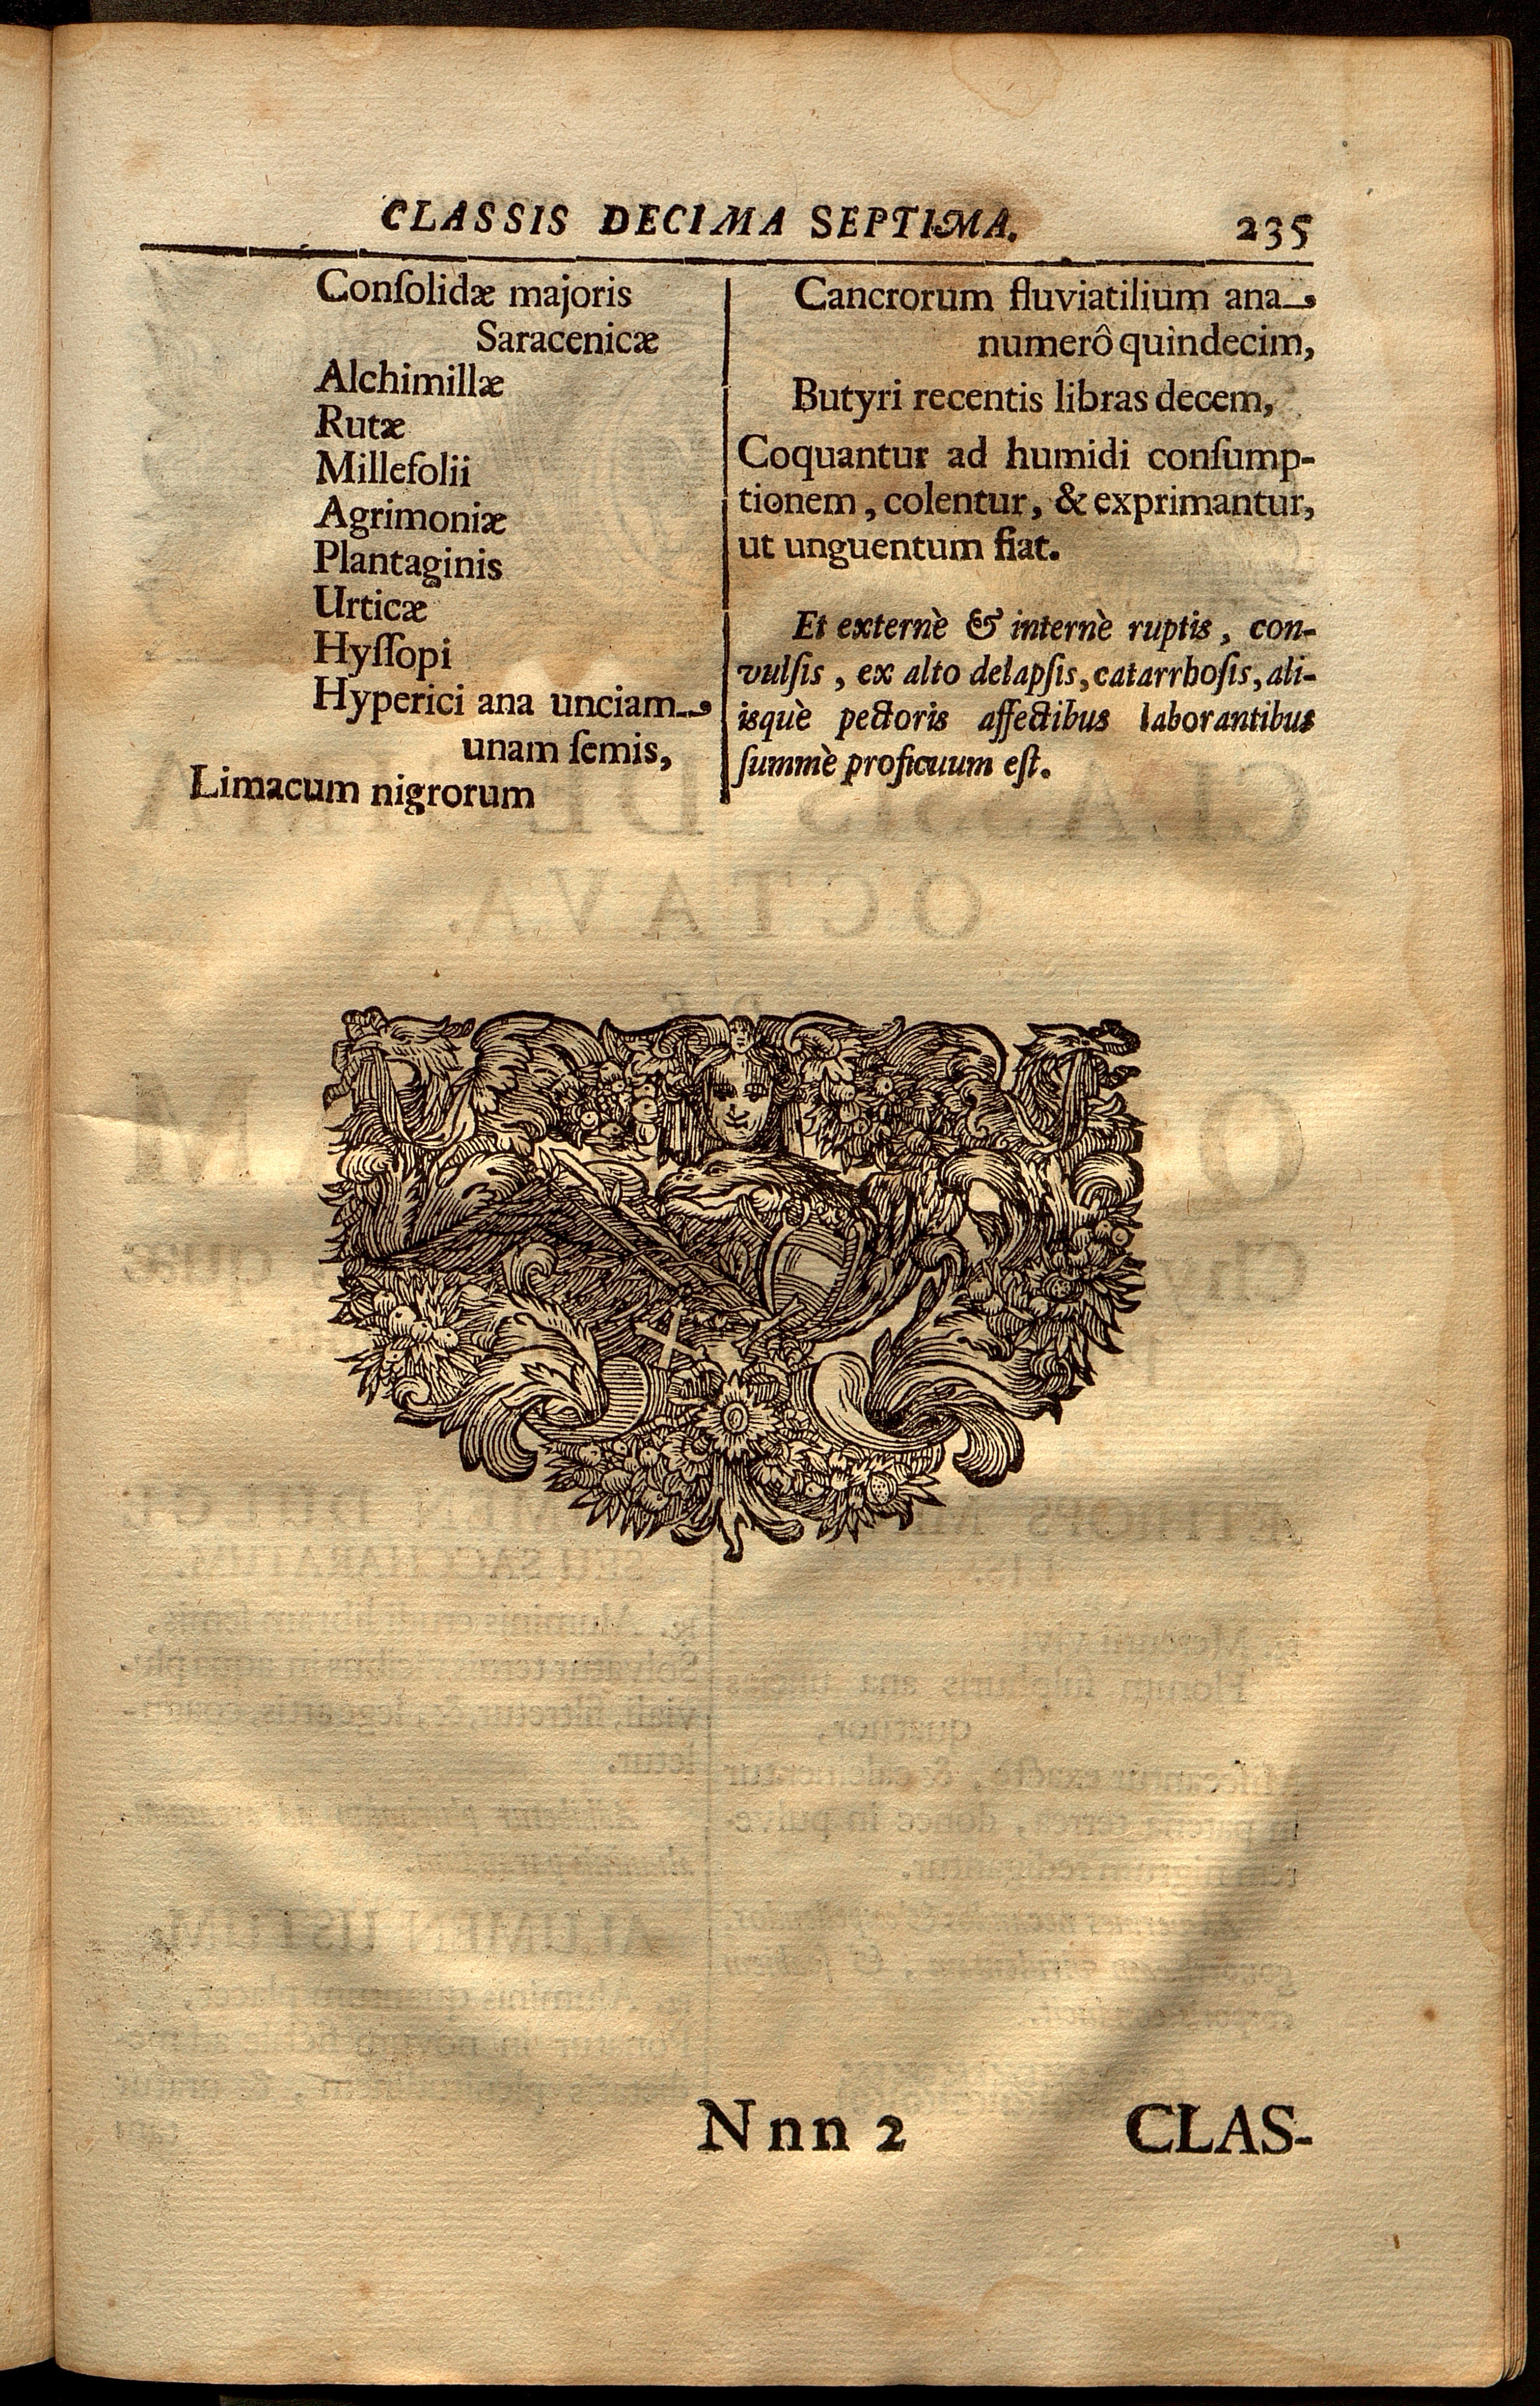 CLASSIS DECIMA SEPTIMA. 235
Conſolidæ majoris
Saracenicæ
Alchimillæ
Rutæ
Millefolii
Agrimoniæ
Plantaginis
Urticæ
Hyſſopi
Hyperici ana unciam
unam ſemis,
Limacum nigrorum
Cancrorum fluviatilium ana
numerô quindecim,
Butyri recentis libras decem,
Coquantur ad humidi conſump-
tionem, colentur, & exprimantur,
ut unguentum fiat.
Et externè & internè ruptis, con-
vulſis, ex alto delapſis, catarrhoſis, ali-
isquè pectoris affectibus laborantibus
ſummè proficuum eſt.
Nnn 2 CLAS-